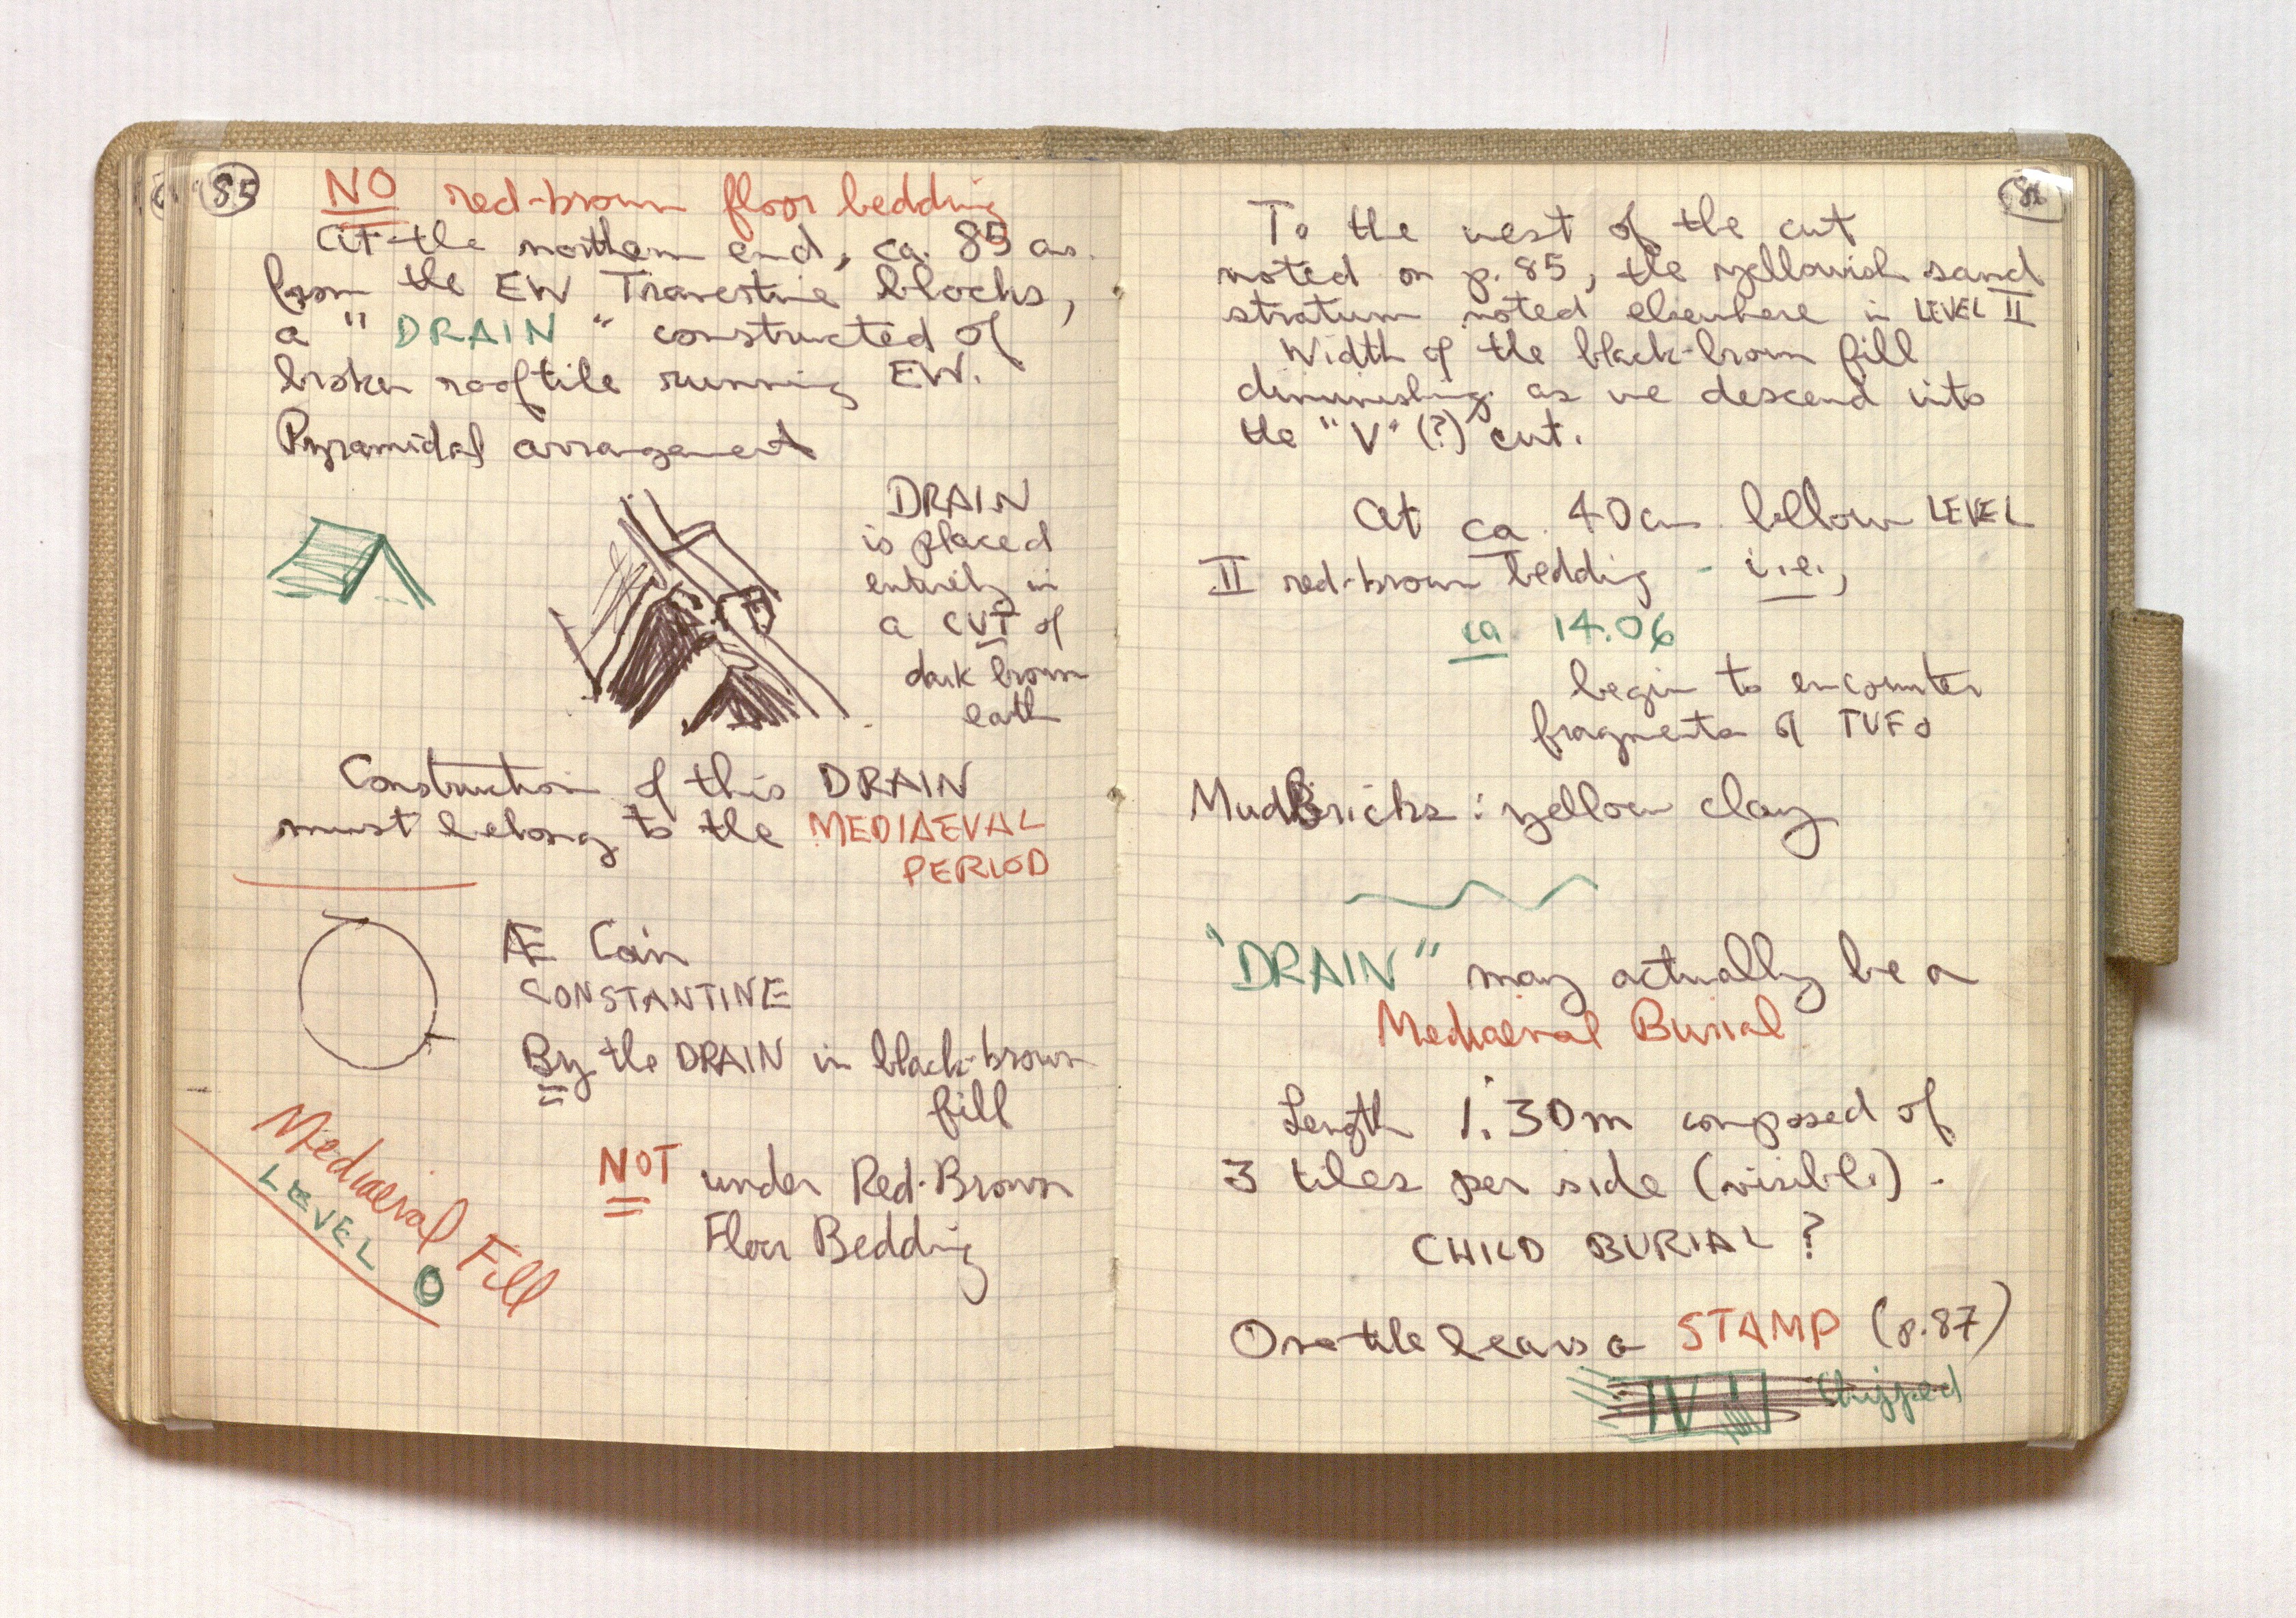 85
NO red-brown floor bedding
At the northern end, ca. 85 cm
from the EW Travertine blocks,
a "DRAIN" constructed of
broken rooftile running EW.
Pyramidal arrangement
DRAIN
is placed
entirely in
a CUT of
dark brown
earth
Construction of this DRAIN
must belong to the MEDIAEVAL
PERIOD
Æ Coin
CONSTANTINE
By the DRAIN in black-brown
fill
NOT under Red-Brown
Floor Bedding
Mediaeval Fill
LEVEL 0
86
To the west of the cut
noted on p. 85, the yellowish sand
stratum noted elsewhere in LEVEL II
Width of the black-brown fill
diminishing as we descend into
the "V" (?) cut.
At ca. 40cm bellow LEVEL
II red-brown bedding - i.e.,
ca 14.06
begin to encounter
fragments of TUFO
MudBricks: yellow clay
"DRAIN" may actually be a
Mediaeval Burial
Length 1.30m composed of
3 tiles per side (visible).
CHILD BURIAL ?
One tile bears a STAMP (p.87)
chipped